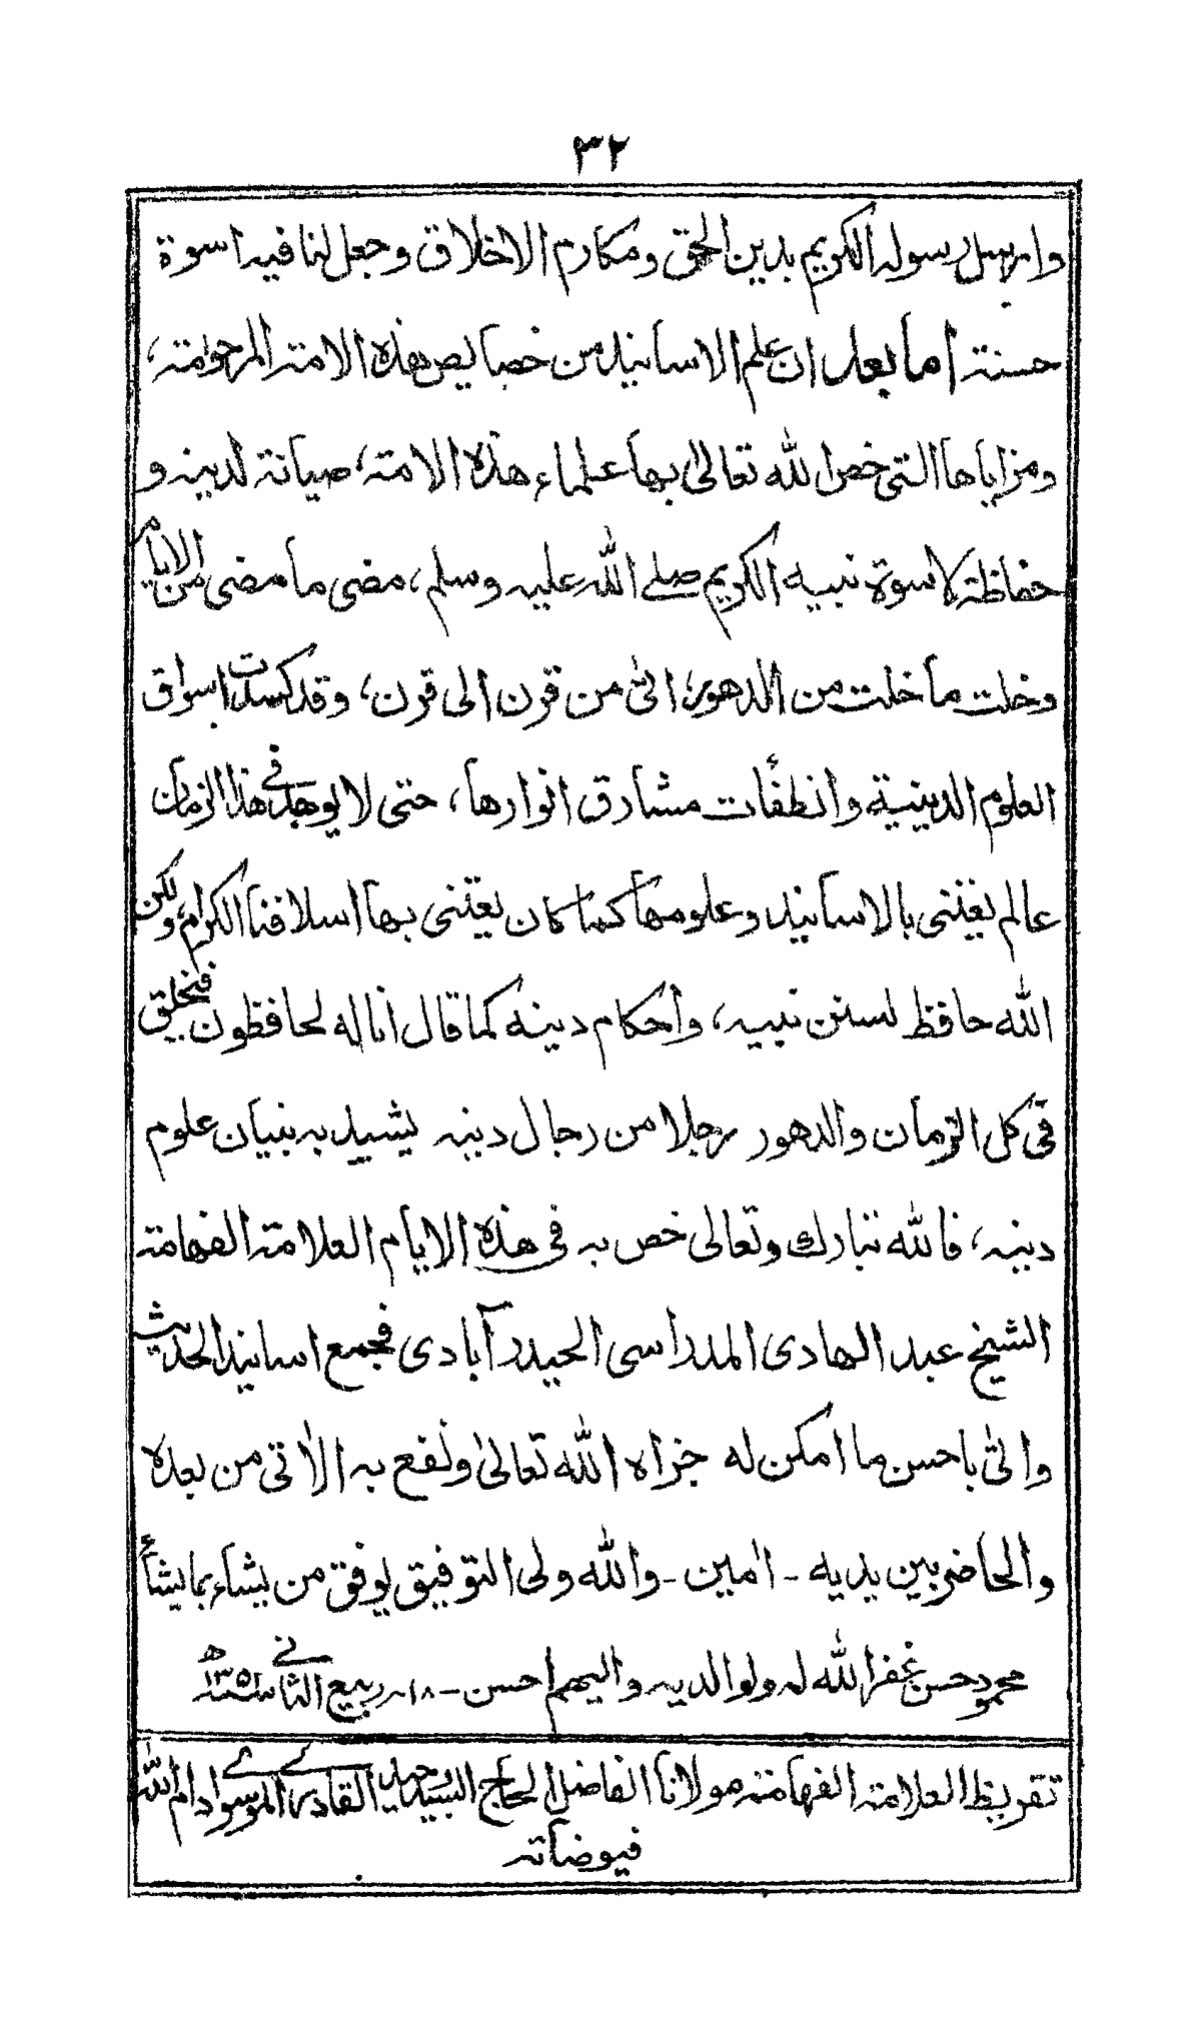 ٣٢
وارسل رسوله الكريم بدين الحق ومكارم الاخلاق وجعل لنا فيه اسوة
حسنة اما بعد ان علم الاسانيد من خصايص هذه الامة المرحومة،
ومزاياها التي خص الله تعالىٰ بها علماء هذه الامة، صيانة لدينه و
حفاظة لاسوة نبيه الكريم صلے الله عليه وسلم، مضى ما مضى من الايام
وخلت ما خلت من الدهور، اتىٰ من قرن الى قرن، وقد كسدت اسواق
العلوم الدينية وانطفأت مشارق انوارها، حتى لا يوجد في هذا الزمان
عالم يعتنى بالاسانيد وعلومها كما كان يعتنى بها اسلافنا الكرام، ولكن
الله حافظ لسنن نبيه، واحكام دينه كما قال انا له لحافظون فيخلق
في كل الزمان والدهور رجلا من رجال دينه يشيد به بنيان علوم
دينه، فالله تبارك وتعالى خص به في هذه الايام العلامة الفهامة
الشيخ عبد الهادى المدراسى الحيدرآبادى فجمع اسانيد الحديث
واتىٰ باحسن ما امكن له جزاه الله تعالىٰ ونفع به الاٰتى من بعده
والحاضر بين يديه - اٰمين - والله ولى التوفيق يوفق من يشاء بما يشأ
محمود حسن غفر الله له ولوالديه واليهم احسن - ١٨ ربيع الثاني سنة ١٣٥١ھ
تقريظ العلامة الفهامة مولانا الفاضل الحاج السيد وحيد القادرى الموسوى ادام الله
فيوضاته